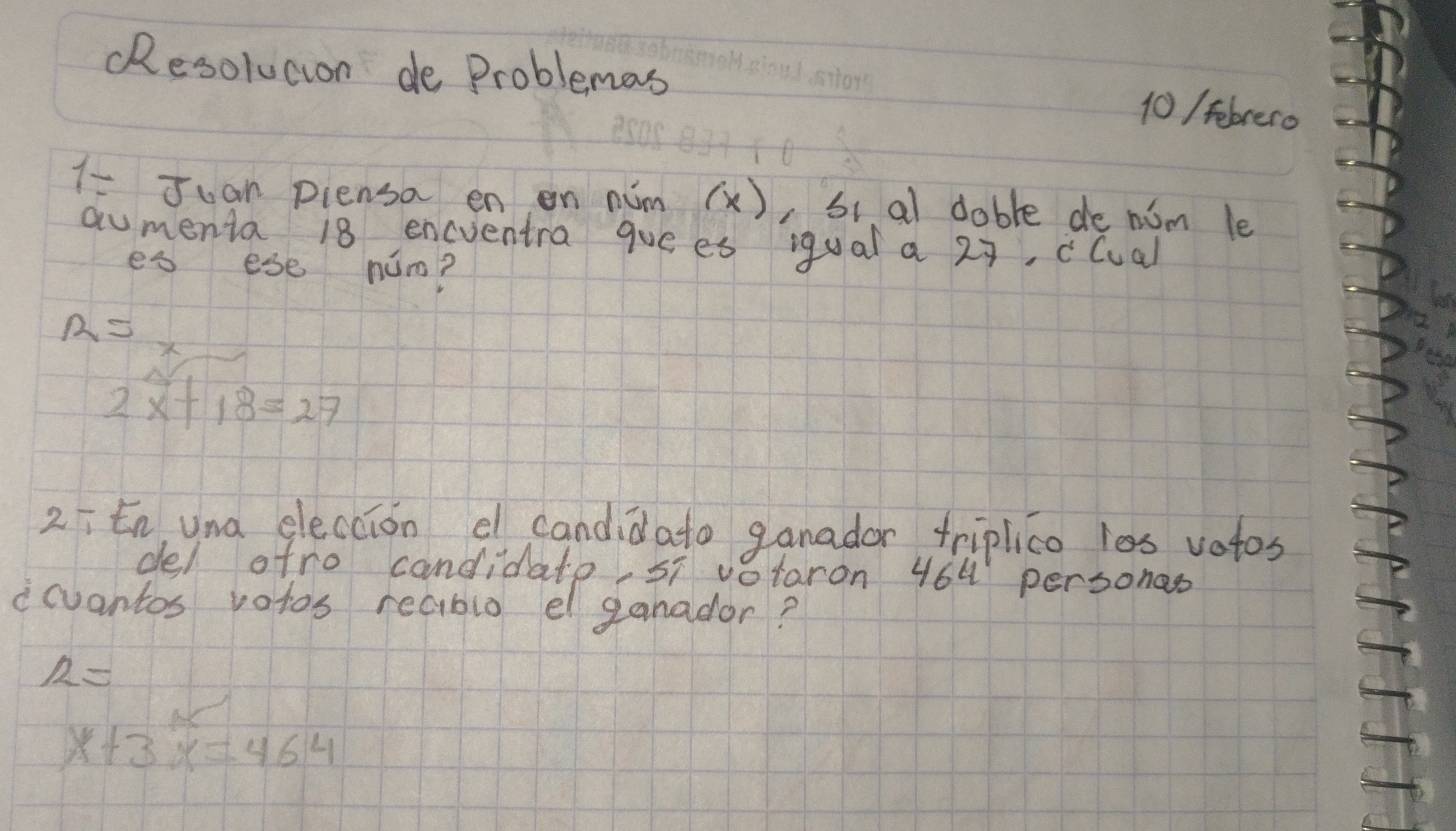 Resolucion de Problemas
10/febrero
1- Juan piensa en en núm (x), si al doble de núm le
aumenta 18 encuentra que es igual a 27, ¿Cual
es ese núm?
R=
x
2x+18=27
2- En una elección el candidato ganador triplico los votos
del otro candidato, si votaron 464 personas
¿cuantos votos recibio el ganador?
R=
x+3x=464